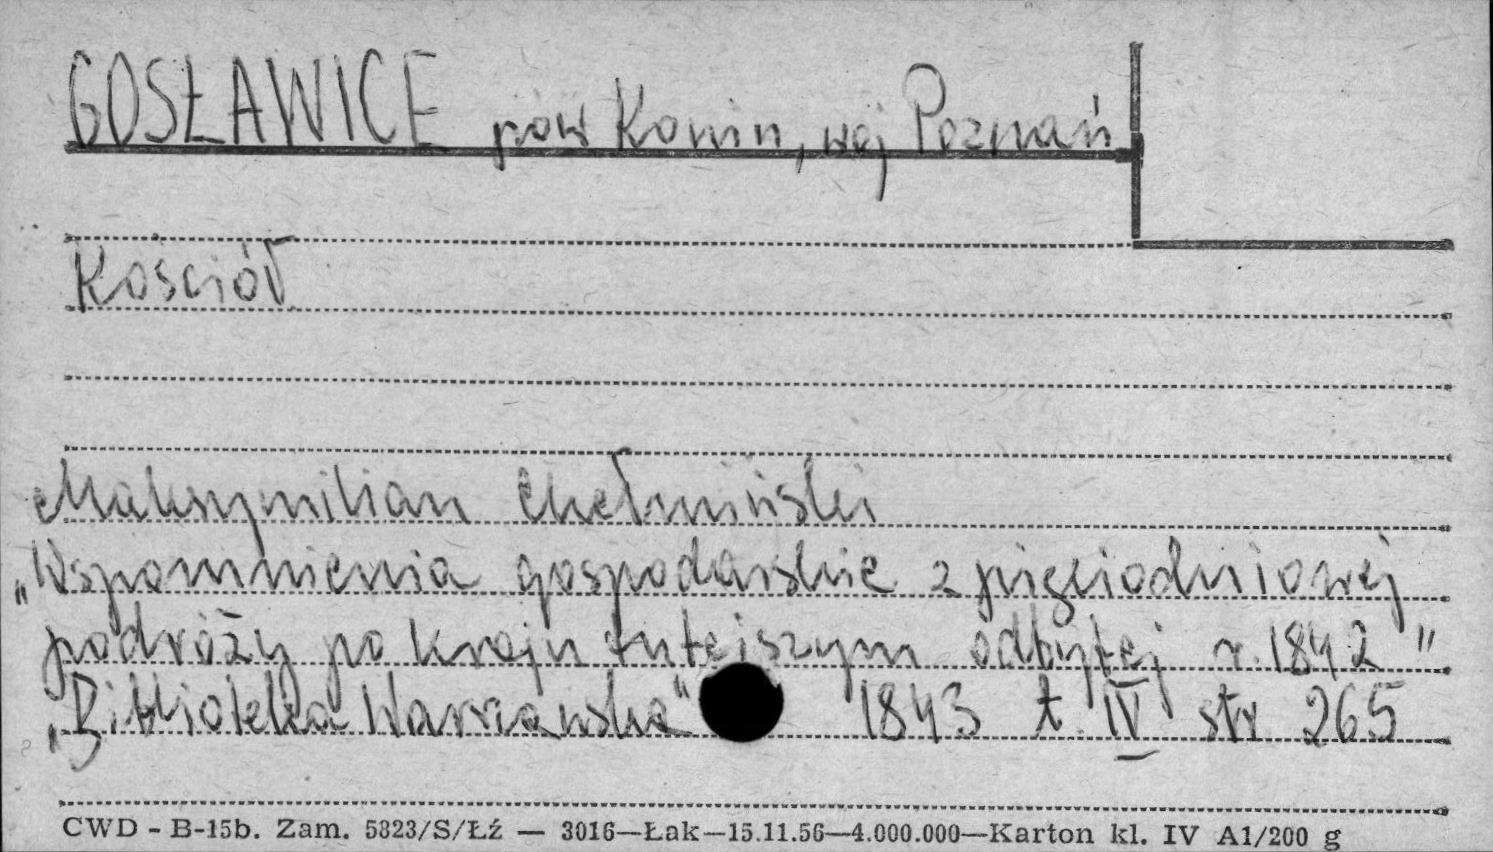 GOSŁAWICE pow Konin, woj Poznań
Kościół
Maksymilian Chełmiński
„Wspomnienia gospodarskie z pięciodniowej
podróży po kraju tutejszym odbytej r. 1842"
„Biblioteka Warszawska" 1843 t. IV str 265
CWD - B-15b. Zam. 5823/S/Łź — 3016—Łak—15.11.56—4.000.000—Karton kl. IV A1/200 g